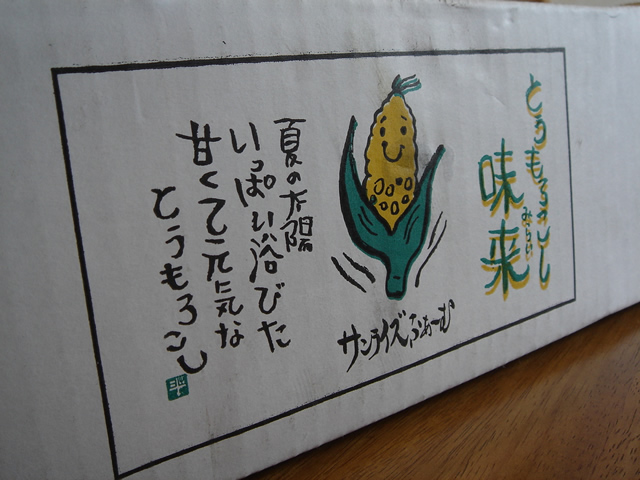 とうもろこし
味来
みらい
サンライズふぁーむ
夏の太陽
いっぱい浴びた
甘くて元気な
とうもろこし